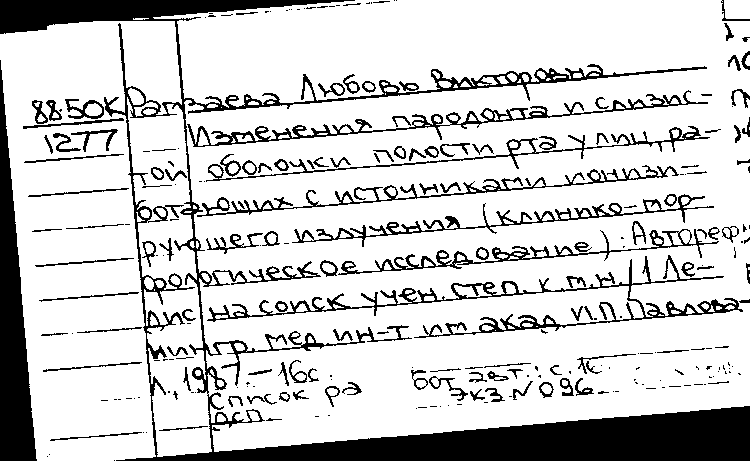 88-50К Рамзаева, Любовь Викторовна.
1277 Изменения пародонта и слизис-
той оболочки полости рта у лиц, ра-
ботающих с источниками ионизи-
рующего излучения (клинико-мор-
фологическое исследование): Автореф.
дис на соиск учен. степ. к.м.н./1 Ле-
нингр. мед. ин-т им. акад. И.П. Павлова.-
Л., 1987.-16с.
Список ра бот авт.: с. 16
ДСП. Экз № 096